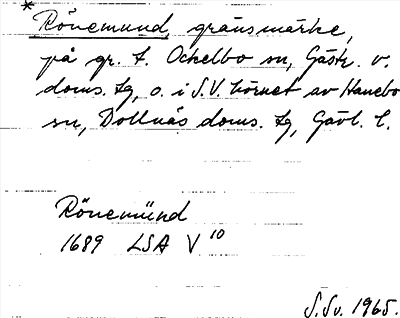 * Rönemund, gränsmärke,
på gr. t. Ockelbo sn, Gästr. v.
doms. tg, o. i S.V. hörnet av Hanebo
sn, Bollnäs doms. tg, Gävl. l.
Rönemünd
1689 LSA V 10
S.Sv. 1965.